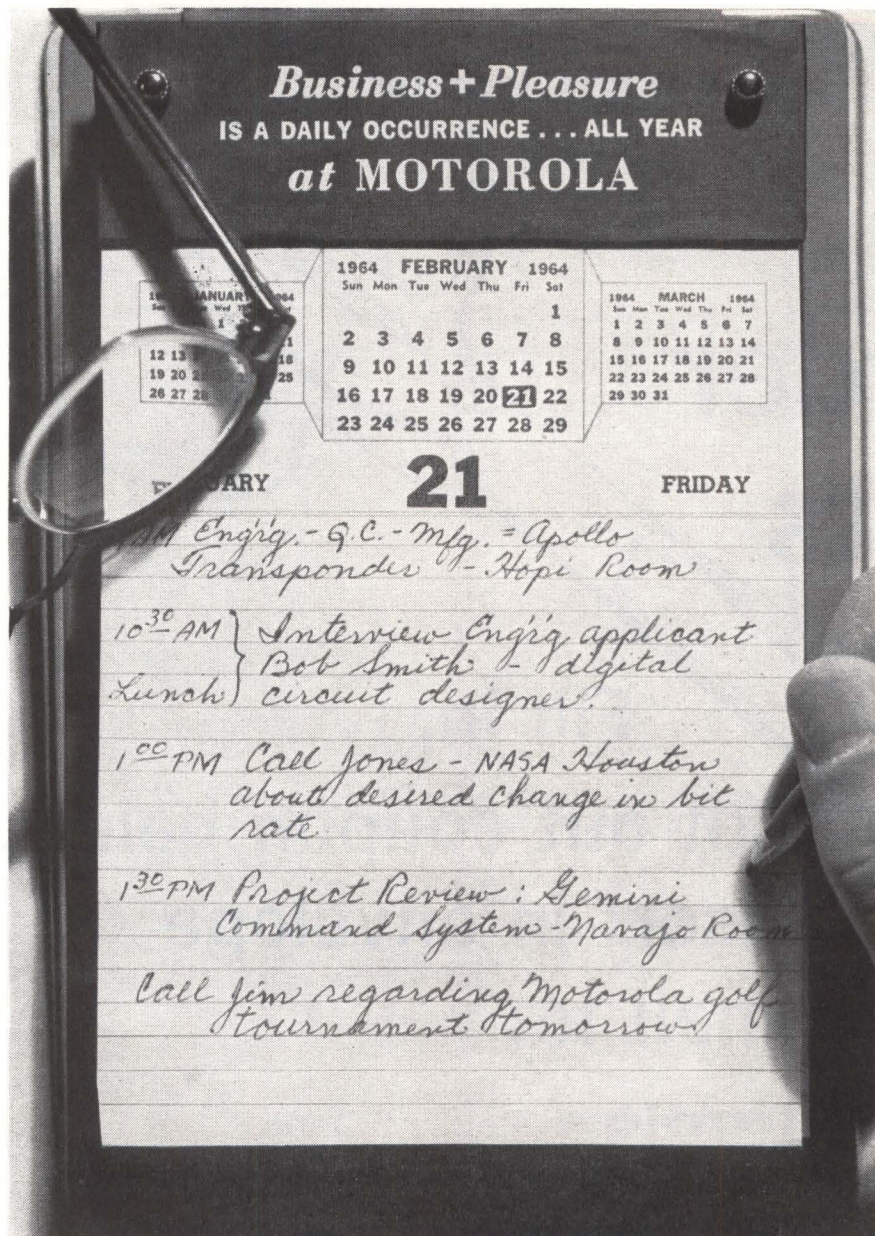 Business + Pleasure
IS A DAILY OCCURRENCE . . . ALL YEAR
at MOTOROLA
JANUARY
1
12 13 18
19 20 25
26 27 28
1964 FEBRUARY 1964
Sun Mon Tue Wed Thu Fri Sat
1
2 3 4 5 6 7 8
9 10 11 12 13 14 15
16 17 18 19 20 21 22
23 24 25 26 27 28 29
1964 MARCH 1964
Sun Mon Tue Wed Thu Fri Sat
1 2 3 4 5 6 7
8 9 10 11 12 13 14
15 16 17 18 19 20 21
22 23 24 25 26 27 28
29 30 31
FEBRUARY 21 FRIDAY
AM Eng'r'g. - Q.C. - Mfg. = Apollo
Transponder - Hopi Room
10 30 AM } Interview Eng'r'g applicant
Bob Smith - digital
Lunch circuit designer.
1 00 PM Call Jones - NASA Houston
about desired change in bit
rate
1 30 PM Project Review : Gemini
Command System - Navajo Room
Call Jim regarding Motorola golf
tournament tomorrow